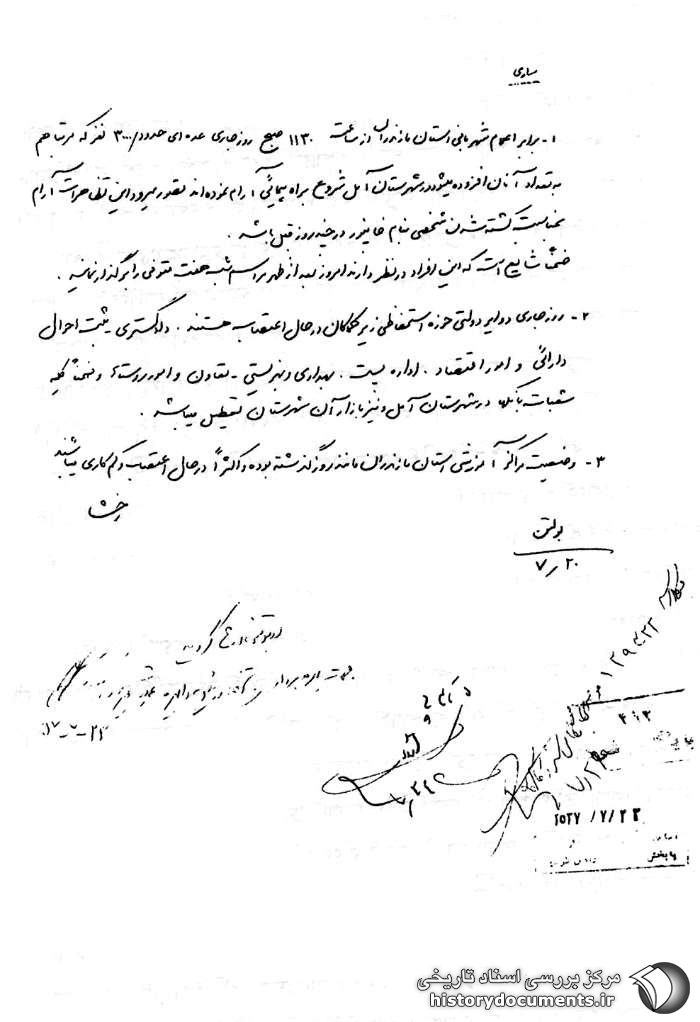 ساری
۱- برابر اعلام شهربانی استان مازندران از ساعت ۱۱۳۰ صبح روز جاری عده ای حدود ۳۰۰۰ نفر که مرتبا هم
به تعداد آنان افزوده میشود در شهرستان آمل شروع براه پیمائی آرام نموده اند تصور میرود این تظاهرات آرام
بمناسبت کشته شدن شخصی بنام خانپور در چند روز قبل باشد .
ضمناً شایع است که این افراد در نظر دارند امروز بعد از ظهر مراسم شب هفت متوفی را برگذار نمایند .
۲- روز جاری دوایر دولتی حوزه استحفاظی زیر کماکان در حال اعتصاب هستند . دادگستری - ثبت احوال
دارائی و امور اقتصاد . اداره پست . بهداری و بهزیستی - تعاون و امور روستاها و ضمناً کلیه
شعبات بانکها در شهرستان آمل و نیز بازار آن شهرستان تعطیل میباشد .
۳- وضعیت مراکز آموزشی استان مازندران مانند روز گذشته بوده و اکثراً در حال اعتصاب و کم کاری میباشند
بولتن
۷/۲۰
در بولتن درج گردید
۲۵۳۷/۷/۲۳
بایگانی
بخش
مرکز بررسی اسناد تاریخی
historydocuments.ir